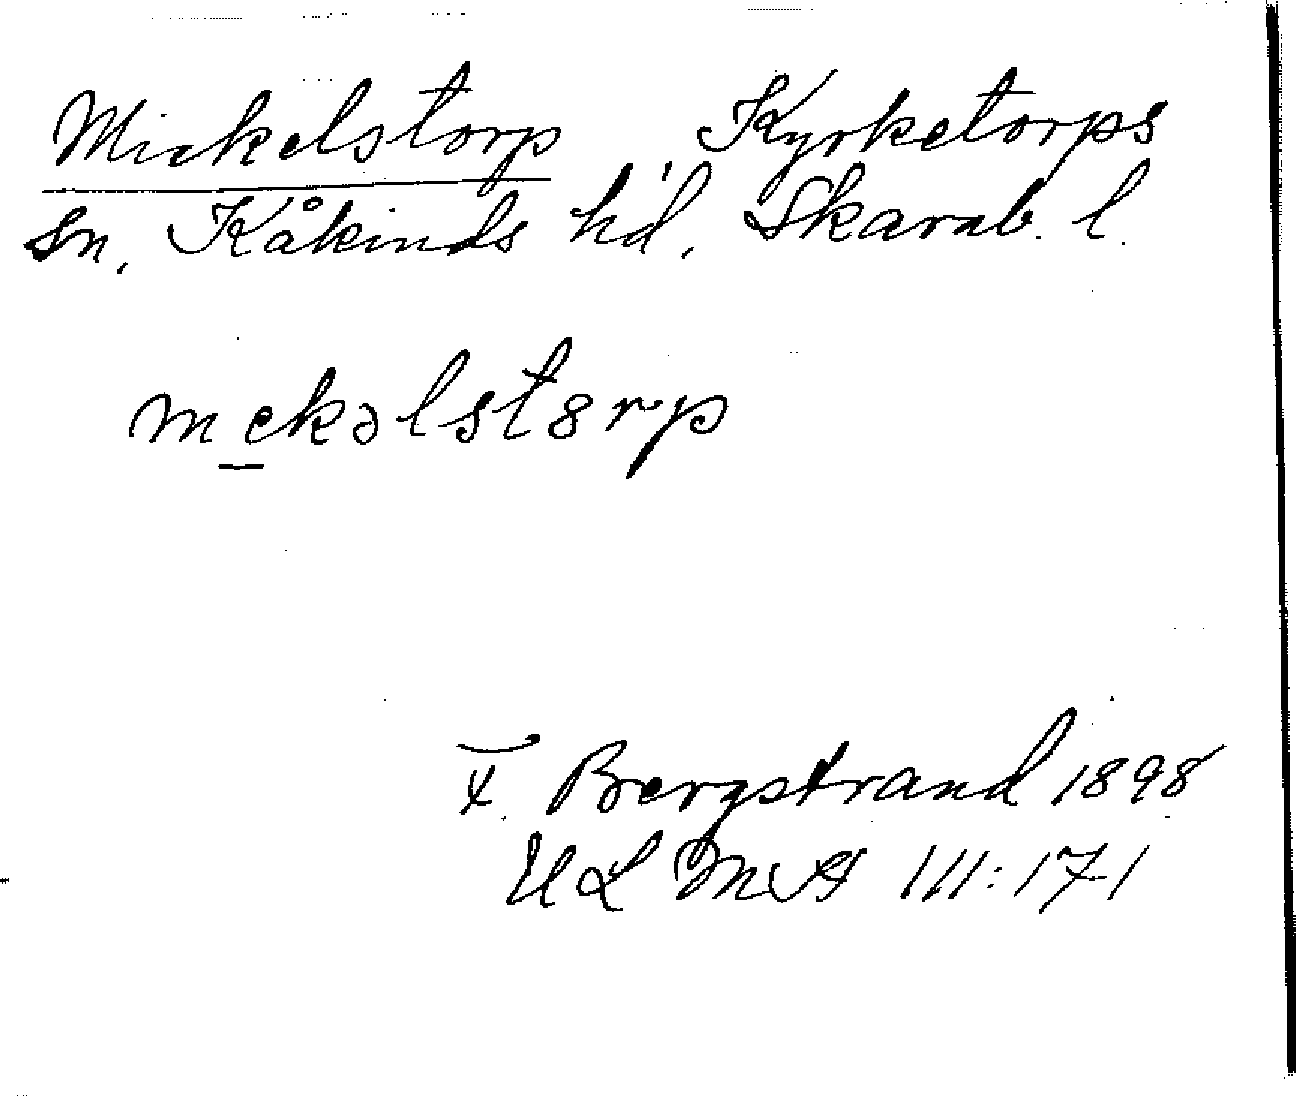 Mickelstorp Kyrketorps
sn, Kåkinds hd, Skarab. l.
mekəlstɷrp
F. Bergstrand 1898
ULMA III:171